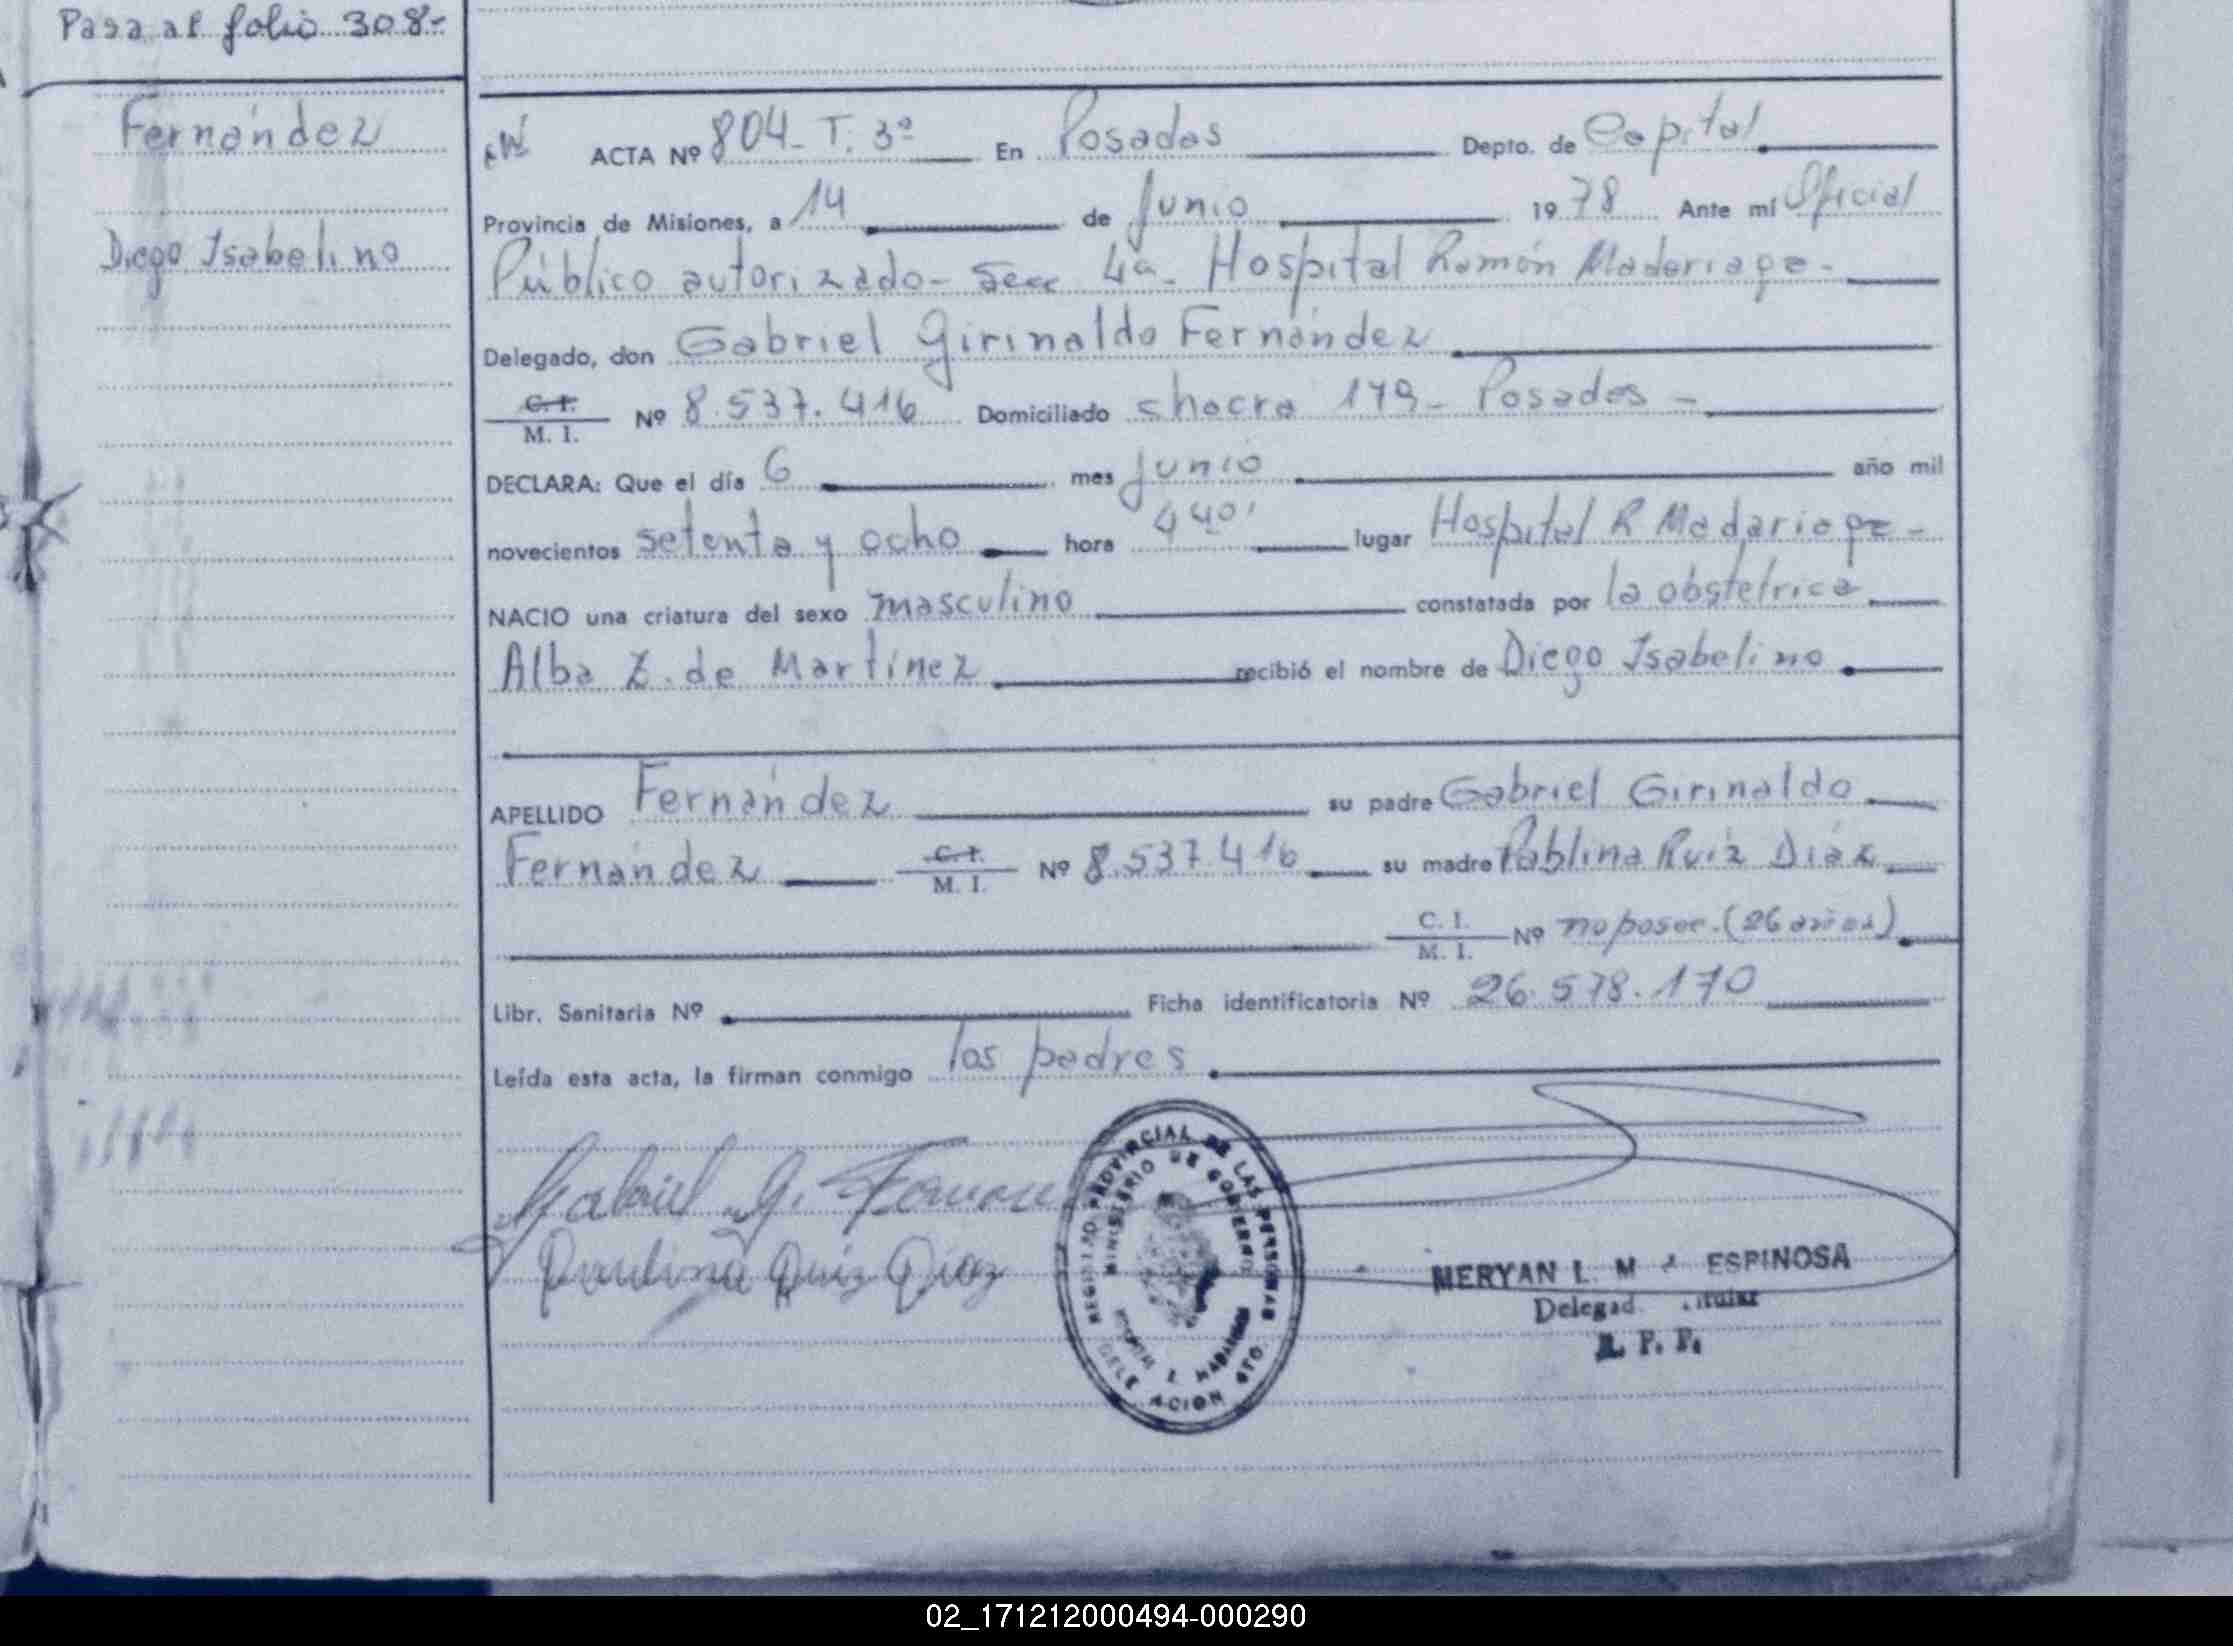 Pasa al folio 308.-
Fernández
Diego Isabelino
ACTA Nº 804- T. 3º En Posadas Depto. de Capital
Provincia de Misiones, a 14 de Junio 1978 Ante mí Oficial
Público autorizado- Secc 4a- Hospital Ramón Madariaga-
Delegado, don Gabriel Girinaldo Fernández
C. I.
M. I. Nº 8.537.416 Domiciliado chacra 179- Posadas -
DECLARA: Que el día 6 mes Junio año mil
novecientos setenta y ocho hora 4 40' lugar Hospital R Madariaga-
NACIO una criatura del sexo masculino constatada por la obstetrica
Alba Z. de Martínez recibió el nombre de Diego Isabelino
APELLIDO Fernández su padre Gabriel Girinaldo
Fernández C. I.
M. I. Nº 8.537.416 su madre Pablina Ruiz Díaz
C. I.
M. I. Nº no posee. (26 años)
Libr. Sanitaria Nº Ficha identificatoria Nº 26.578.170
Leída esta acta, la firman conmigo los padres
Gabriel G.
Paulina Ruiz Diaz
REGISTRO PROVINCIAL DE LAS PERSONAS
MINISTERIO DE GOBIERNO
MERYAN L. M ESPINOSA
02_171212000494-000290